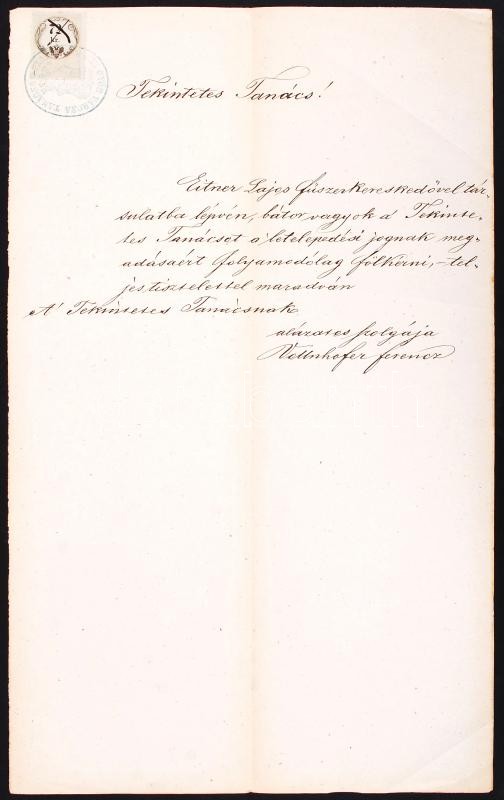 72
kr.
Tekintetes Tanács!
Eitner Lajos füszerkereskedövel tár-
sulatba lépvén, bátor vagyok a' Tekinte-
tes Tanácsot a' letelepedési jognak meg-
adásaért folyamodólag fölkérni, – tel-
jes tisztelettel maradván
A' Tekintetes Tanácsnak
alázatos szolgája
Ferencz